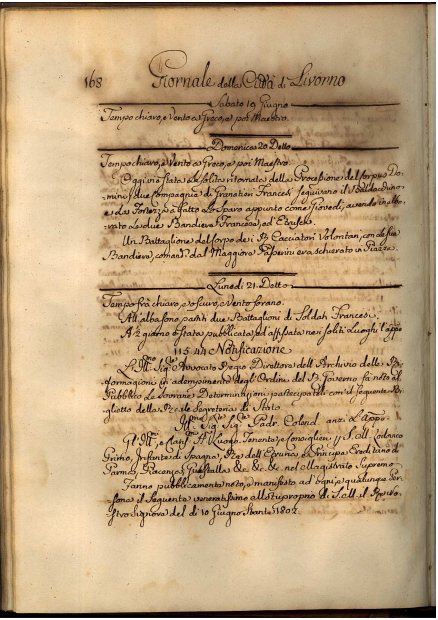 168 Giornale della Città di Livorno
Sabato 19 Giugno
Tempo chiaro, e Vento a Greco, e poi Maestro.
Domenica 20 Detto
Tempo chiaro, e Vento a Greco, e poi Maestro.
Oggi vi è stata la solita ritornata della Processione del Corpus Do-
mini, due Compagnie di Granatieri Francesi seguirono il
e la Fortezza à fatto lo sbaro appunto come Giovedì, avendo inalbe-
rato le due Bandiere Francese, ed Etrusche.
Un Battaglione del Corpo dei Cacciatori Volontari, con la sua
Bandiera, comand. dal Maggiore era schierato in Piazza.
Lunedì 21 Detto
Tempo frà chiaro, e oscuro, e Vento forano.
All'alba sono partiti due Battaglioni di Soldati Francesi.
A giorno è stata pubblicata, ed affissata nei soliti Luoghi l'appo
Notificazione
L'Ill.mo Sig.re Avvocato Regio Direttore dell'Archivio delle Ri-
formagioni in adempimento degl'Ordini del R. Governo fa noto al
Pubblico le Sovrane Determinazioni partecipateli con il seguente Bi-
glietto della Reale Segreteria di Stato.
Ill.mo Sig. Sig.re Padr. Colend.
Gl'Ill. e Luogo Tenente, e Consiglieri di S. M. Lodovico
Primo, Infante di Spagna, Re dell'Etruria, e Principe Ereditario di
Parma, Piacenza, Guastalla &c. &c. &c. nel Magistrato Supremo
Fanno pubblicamente noto, e manifesto ad ogni, e qualunque Per-
sona il seguente veneratissimo Motuproprio di S. M. il Re No-
stro Signore del dì 10 Giugno Stante 1802.